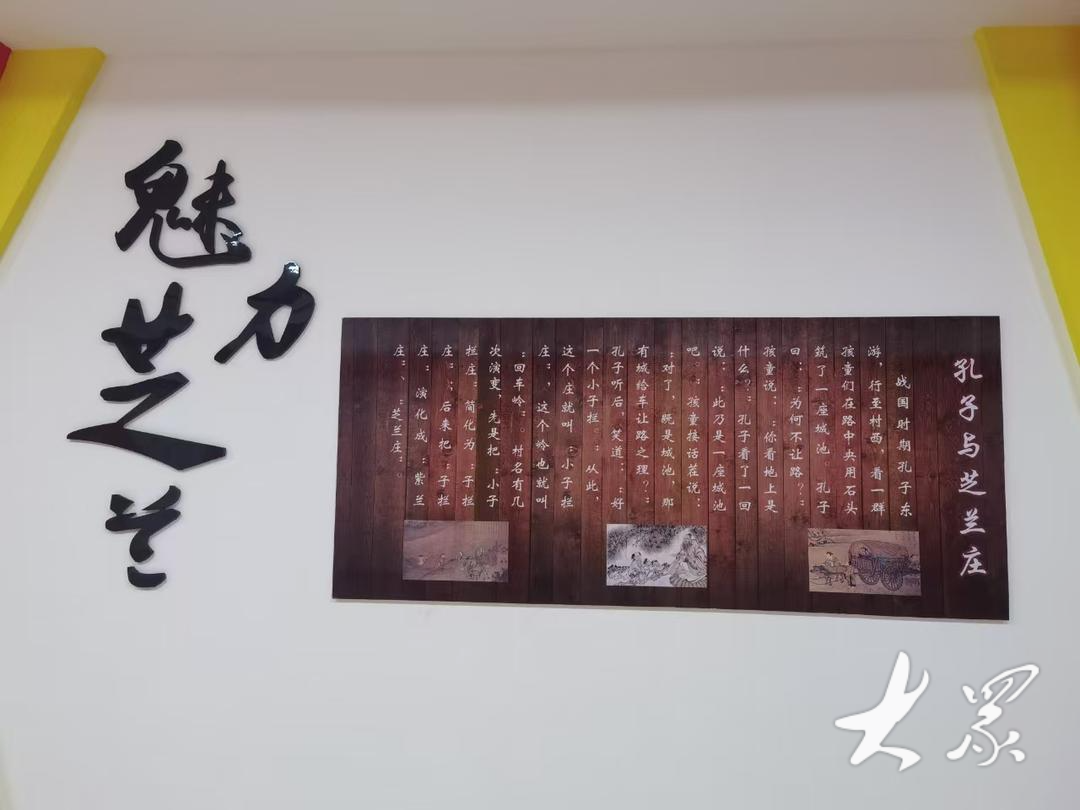 魅力
芝兰
孔子与芝兰庄
战国时期孔子东
游，行至村西，看一群
孩童们在路中央用石头
筑了一座城池。孔子
曰：：为何不让路？：：
孩童说，：你看地上是
什么？：孔子看了一回
说：：此乃是一座城池
吧。：孩童接话茬说：
：对了，既是城池，那
有城给车让路之理？：
孔子听后，笑道：：好
一个小子拦。：从此，
这个庄就叫：小子拦
庄：，这个岭也就叫
：回车岭：。村名有几
次演变，先是把：小子
拦庄：简化为：子拦
庄：；后来把：子拦
庄：演化成：紫兰
庄：、：芝兰庄：。
大眾